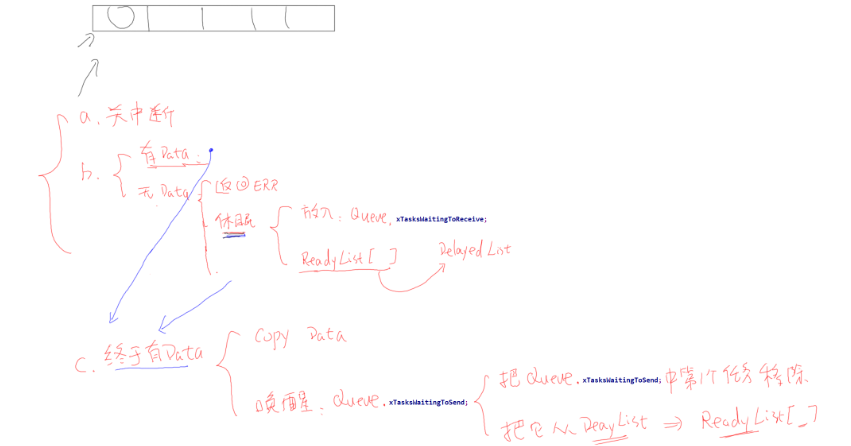 a. 关中断
b. 有Data:
无Data: 返回ERR
休眠 放入: Queue. xTasksWaitingToReceive;
ReadyList[ ] Delayed List
c. 终于有Data copy Data
唤醒: Queue. xTasksWaitingToSend; 把Queue. xTasksWaitingToSend; 中第1个任务移除
把它从DeayList ⇒ ReadyList[_]